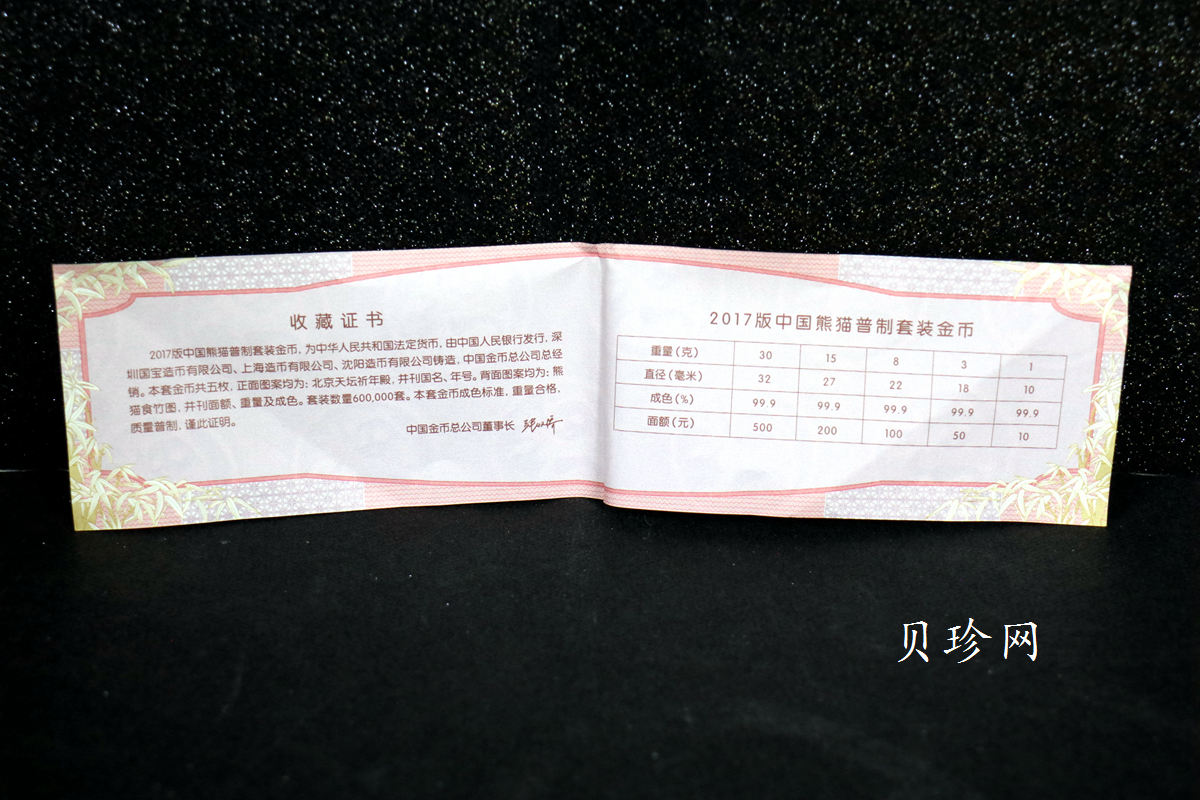 收藏证书
2017版中国熊猫普制套装金币，为中华人民共和国法定货币，由中国人民银行发行，深
圳国宝造币有限公司、上海造币有限公司、沈阳造币有限公司铸造，中国金币总公司总经
销。本套金币共五枚，正面图案均为：北京天坛祈年殿，并刊国名、年号。背面图案均为：熊
猫食竹图，并刊面额、重量及成色。套装数量600,000套。本套金币成色标准，重量合格，
质量普制，谨此证明。
中国金币总公司董事长
2017版中国熊猫普制套装金币
重量（克） 30 15 8 3 1
直径（毫米） 32 27 22 18 10
成色（%） 99.9 99.9 99.9 99.9 99.9
面额（元） 500 200 100 50 10
贝珍网